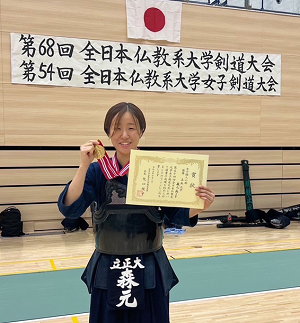 第68回 全日本仏教系大学剣道大会
第54回 全日本仏教系大学女子剣道大会
賞状
立正大
森元